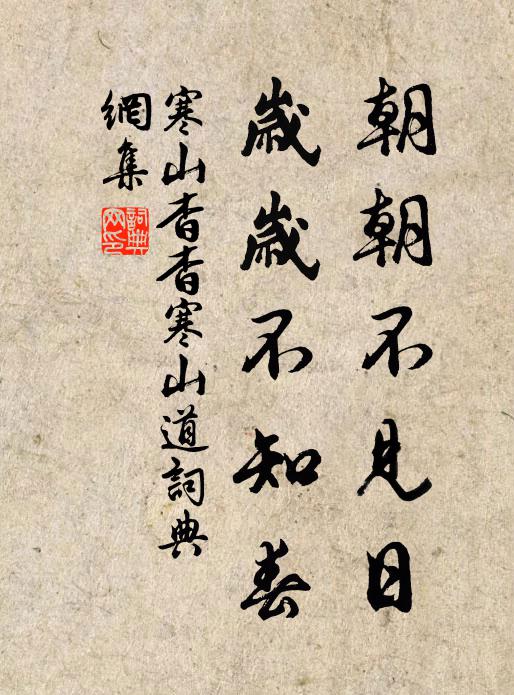 朝朝不見日
歲歲不知春
寒山杳杳寒山道詞典
網集
詞典
网印